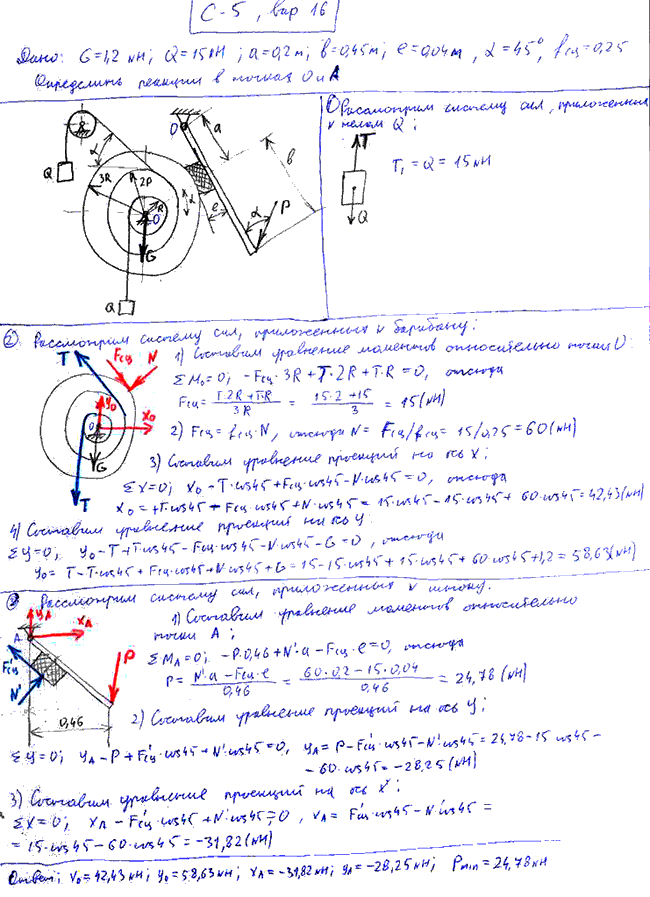 С-5, вар 16
Дано: G=1,2 кН; Q=15кН; a=0,2 м; b=0,45м; e=0,04м, α=45°, fсц=0,25
Определить реакции в точках О и А
О
a
b
α
Q
3R
2R
R
α
e
α
P
O
G
Q
1) Рассмотрим систему сил, приложенных
к телам Q;
T
T₁ = Q = 15кН
Q
2) Рассмотрим систему сил, приложенных к барабану:
T
Fсц
N
y₀
x₀
O
G
T
1) Составим уравнение моментов относительно точки О:
ΣM₀=0; -Fсц·3R+T·2R+T·R=0, отсюда
Fсц= (T·2R+T·R)/3R = (15·2+15)/3 = 15(кН)
2) Fсц=fсц·N, отсюда N= Fсц/fсц=15/0,25=60(кН)
3) Составим уравнение проекций на ось x:
ΣX=0; x₀-T·cos45+Fсц·cos45-N·cos45=0, отсюда
x₀=+T·cos45-Fсц·cos45+N·cos45=15·cos45-15·cos45+60·cos45=42,43(кН)
4) Составим уравнение проекций на ось y:
Σy=0; y₀-T+T·cos45-Fсц·cos45-N·cos45-G=0, отсюда
y₀=T-T·cos45+Fсц·cos45+N·cos45+G=15-15·cos45+15·cos45+60·cos45+1,2=58,63(кН)
3) Рассмотрим систему сил, приложенных к
yA
xA
A
F'сц
N'
P
0,46
1) Составим уравнение моментов относительно
точки А;
ΣMA=0; -P·0,46+N'·a-Fсц·e=0, отсюда
P= (N'·a-Fсц·e)/0,46 = (60·0,2-15·0,04)/0,46 = 24,78(кН)
2) Составим уравнение проекций на ось y;
Σy=0; yA-P+F'сц·cos45+N'·cos45=0, yA=P-F'сц·cos45-N'·cos45=24,78-15·cos45-
-60·cos45=-28,25(кН)
3) Составим уравнение проекций на ось x:
ΣX=0; xA-F'сц·cos45+N'·cos45=0, xA=F'сц·cos45-N'·cos45=
=15·cos45-60·cos45=-31,82(кН)
Ответ: x₀=42,43кН; y₀=58,63кН; xA=-31,82кН; yA=-28,25кН; Pmin=24,78кН